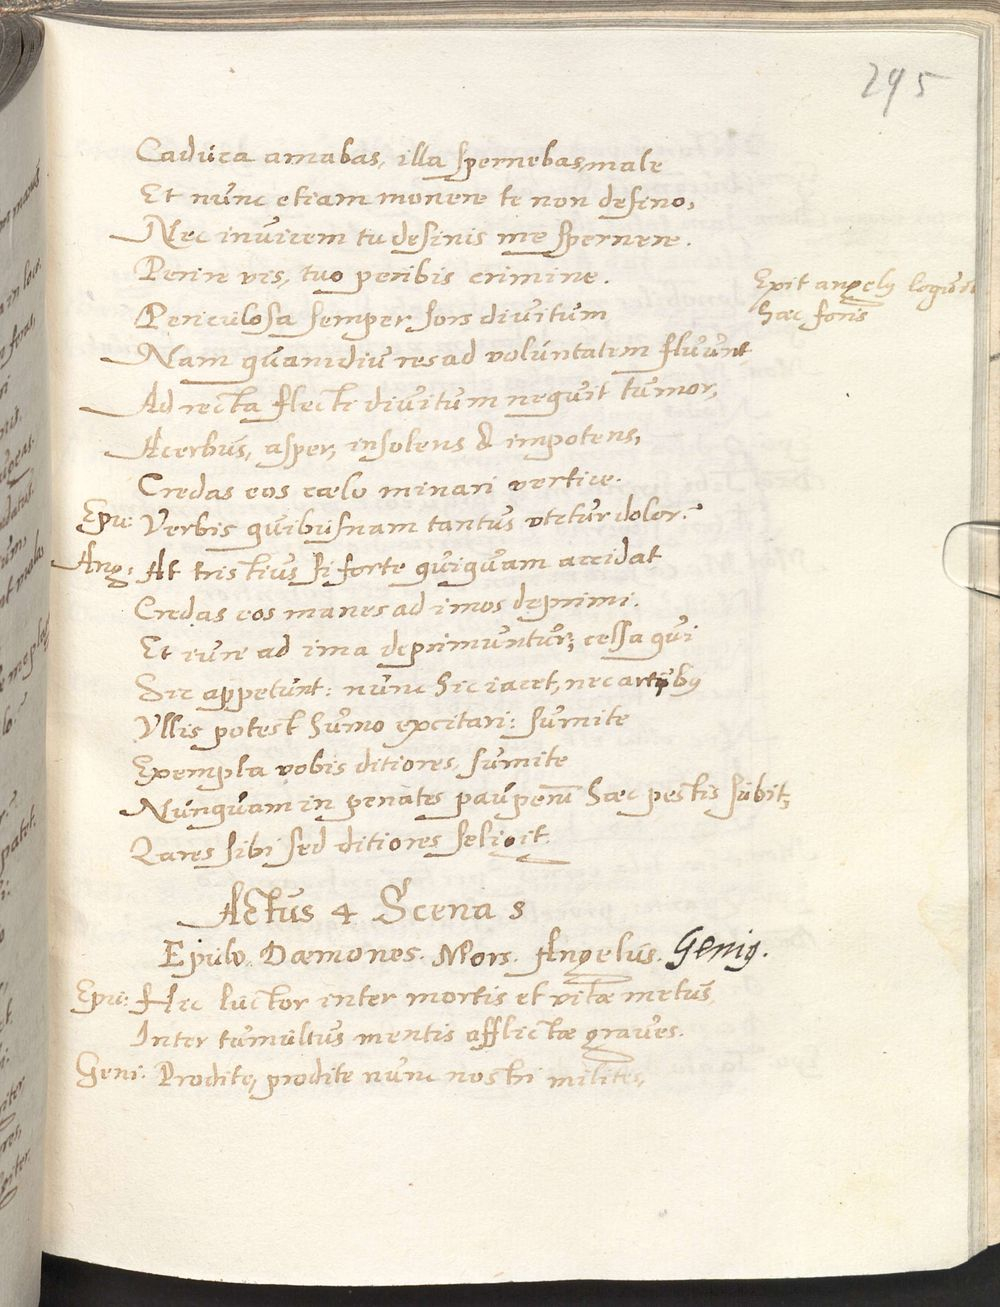 295
Caduca amabas, illa spernebas, male
Et nunc etiam monere te non desino,
Nec invicem tu desinis me spernere.
Perire vis, tuo peribis crimine.
Exit angelus
hæc foris
Periculosa semper sors divitum
Nam quamdiu res ad voluntatem fluunt
Ad recta flecti divitum nequit tumor,
Acerbus, asper, insolens & impotens,
Credas eos cælo minari vertice.
Epu: Verbis quibusnam tantus utetur dolor?
Ang: At tristius si forte quiquam accidat
Credas eos manes ad imos deprimi.
Et iure ad ima deprimuntur, celsa qui
Sic appetunt: nunc hic iacet, nec artibus
Ullis potest humo excitari: sumite
Exempla vobis ditiores, sumite
Nunquam in penates pauperum hæc pestis subit,
Lares sibi sed ditiores seligit.
Actus 4 Scena 5
Epulo. Dæmones. Mors. Angelus. Genius.
Epu: Hec luctor inter mortis et vitæ metus
Inter tumultus mentis afflictæ graves.
Geni. Prodite, prodite nunc nostri milites,